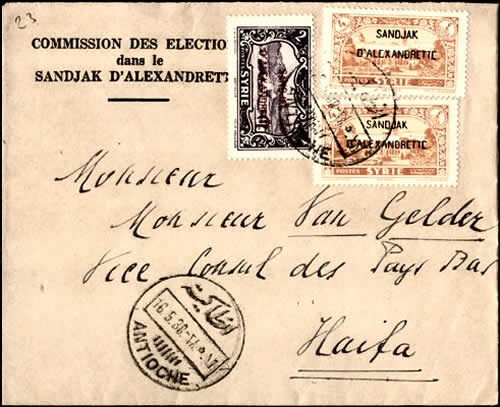 23
COMMISSION DES ELECTION
dans le
SANDJAK D'ALEXANDRETT
2
SYRIE
SANDJAK
D'ALEXANDRETTE
SYRIE
SANDJAK
D'ALEXANDRETTE
POSTES SYRIE
Monsieur
Monsieur Van Gelder
Vice Consul des Pays Bas
Haifa
انطاكية
16.5.38
ANTIOCHE